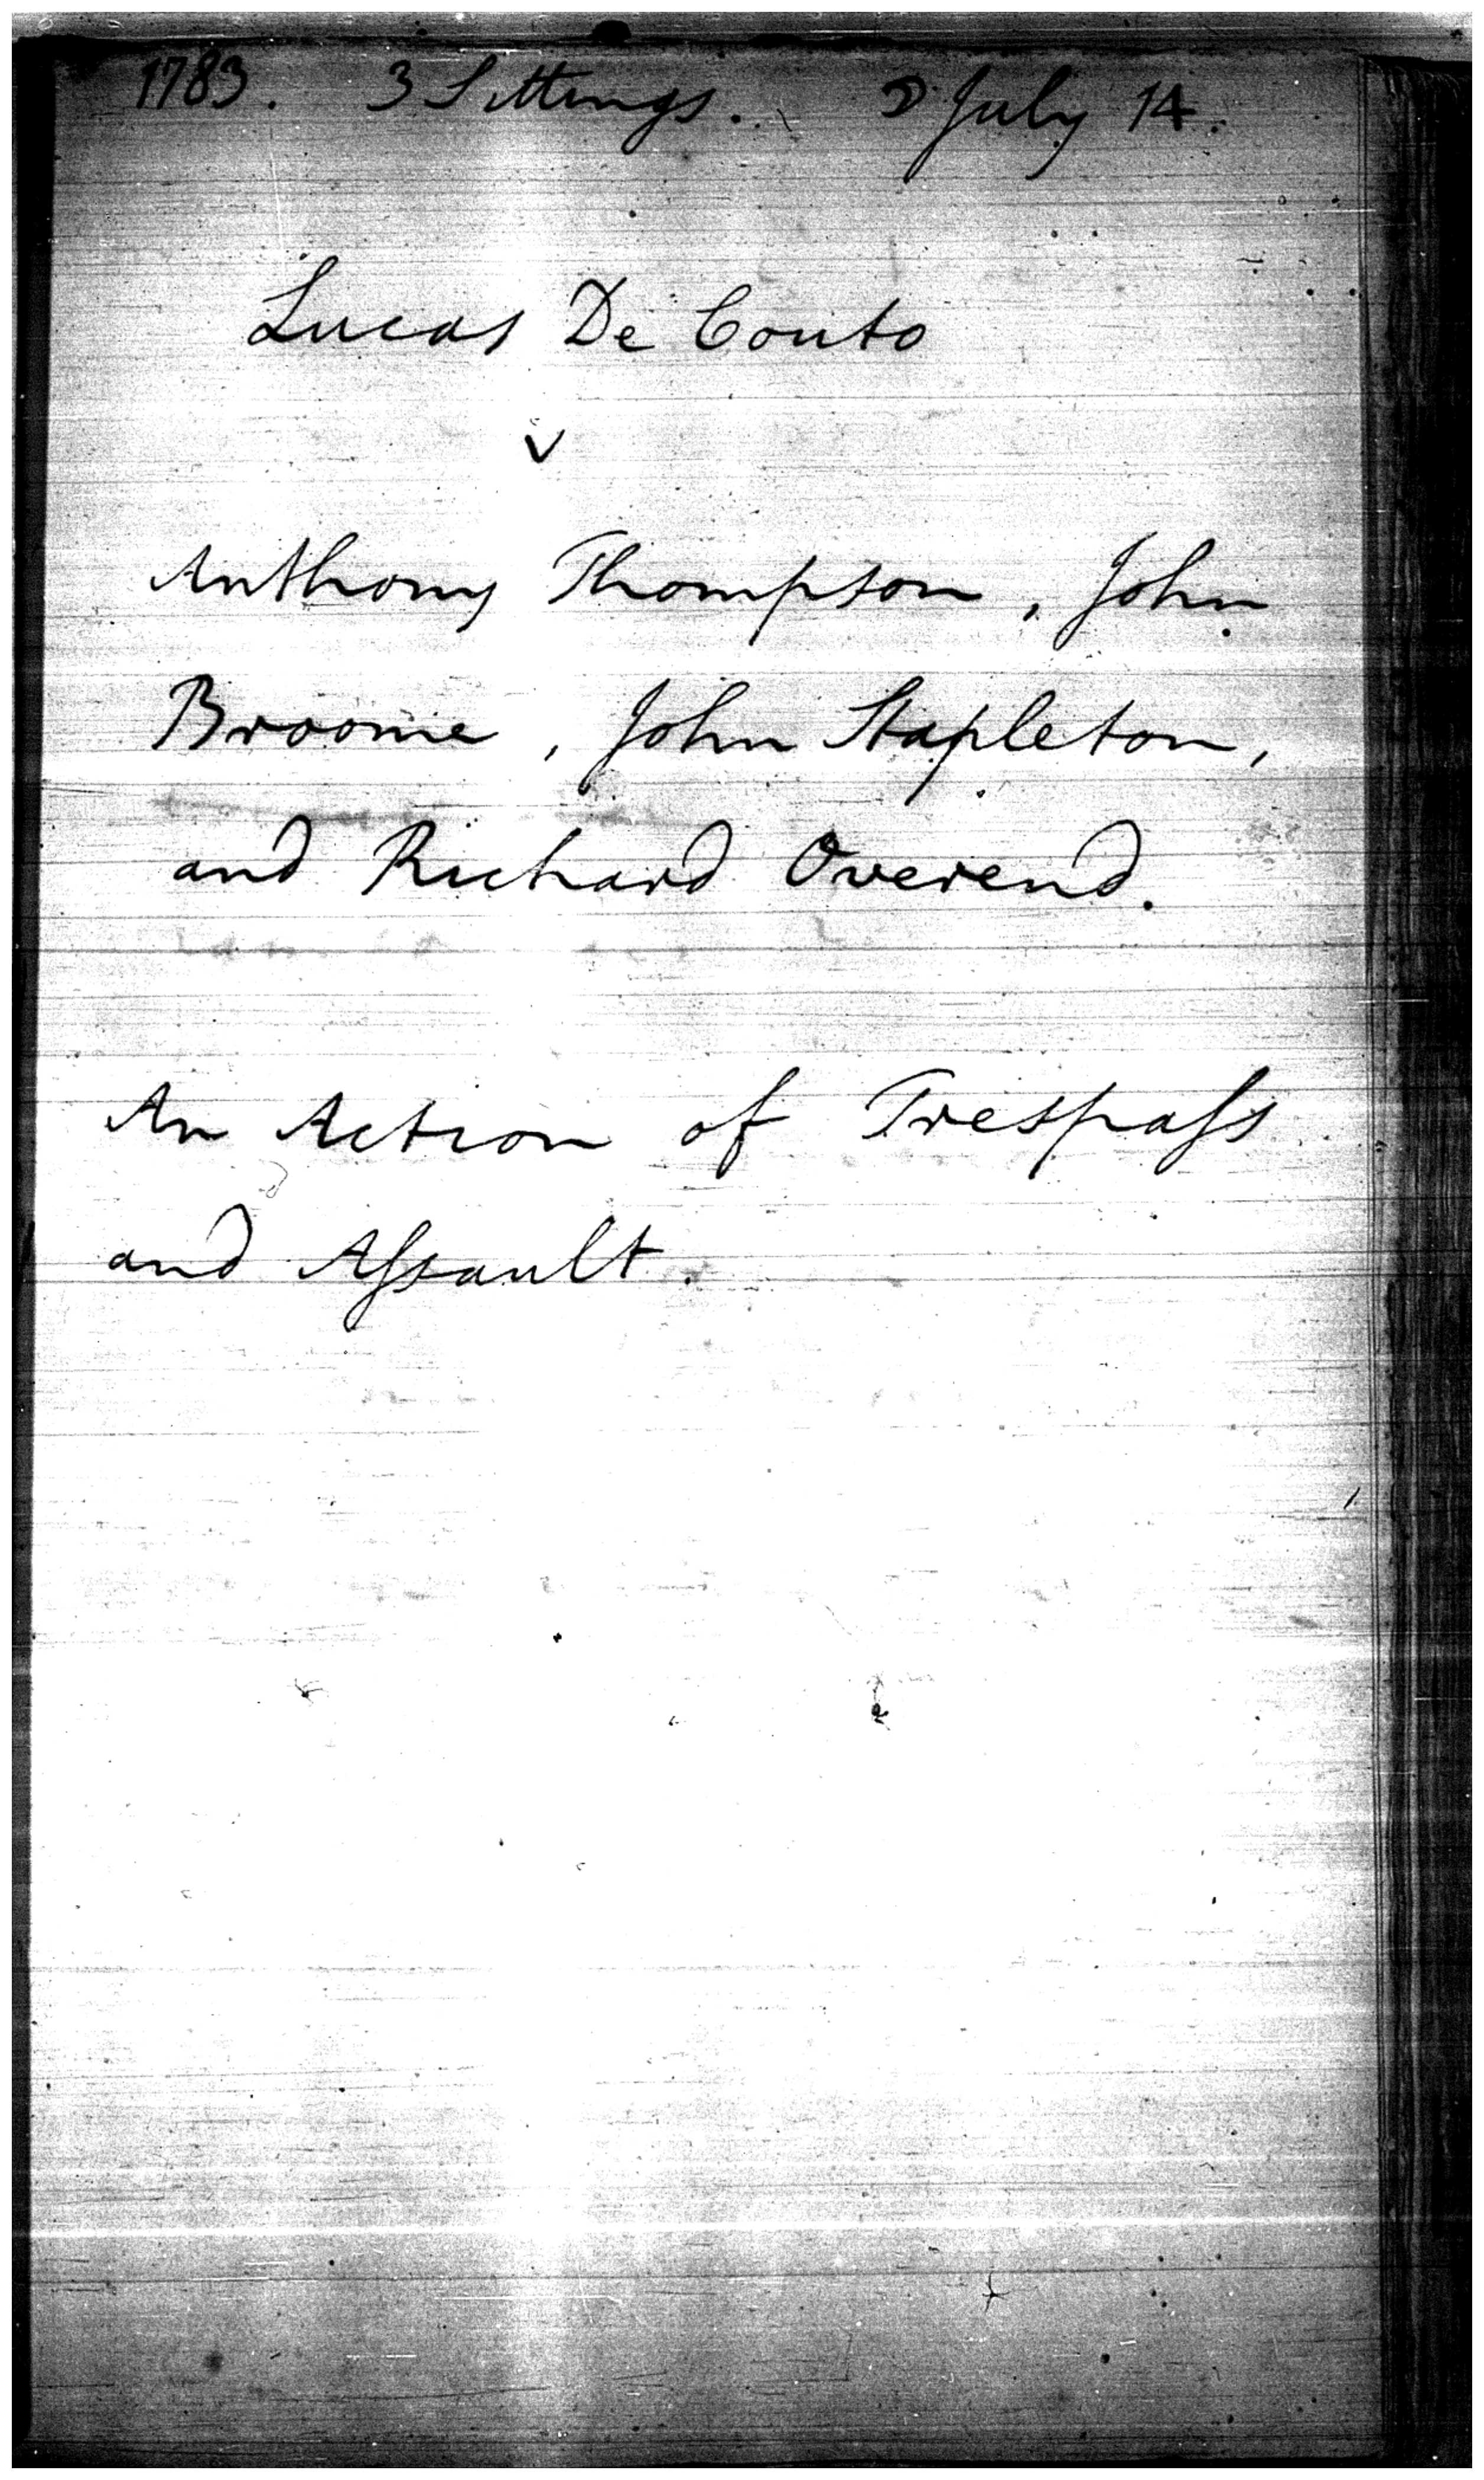 1783. 3 Sittings. ☽ July 14.
Lucas De Couto
v
Anthony Thompson, John
Broome, John Stapleton,
and Richard Overend.
An Action of Trespaſs
and Aſsault.